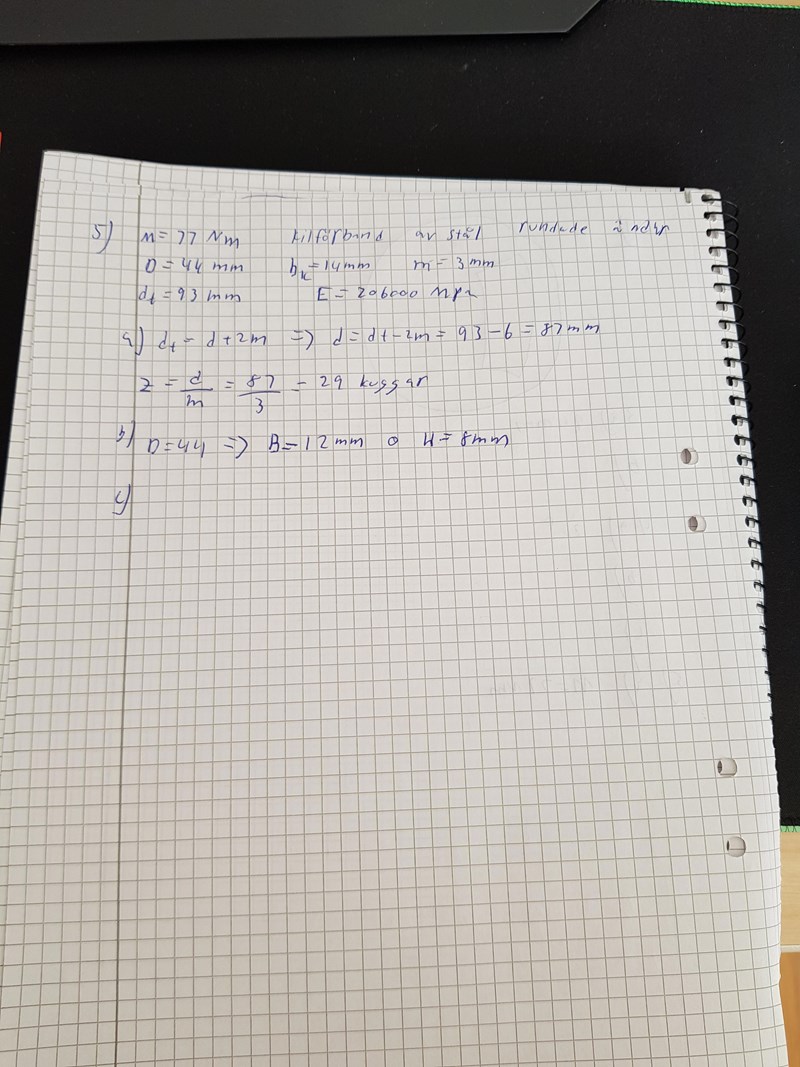 5) M = 77 Nm kilförband av stål rundade ändar
D = 44 mm bk = 14 mm m = 3 mm
dt = 93 mm E = 206000 MPa
a) dt = d + 2m => d = dt - 2m = 93 - 6 = 87 mm
z = d/m = 87/3 = 29 kuggar
b) D = 44 => B = 12 mm o H = 8 mm
c)